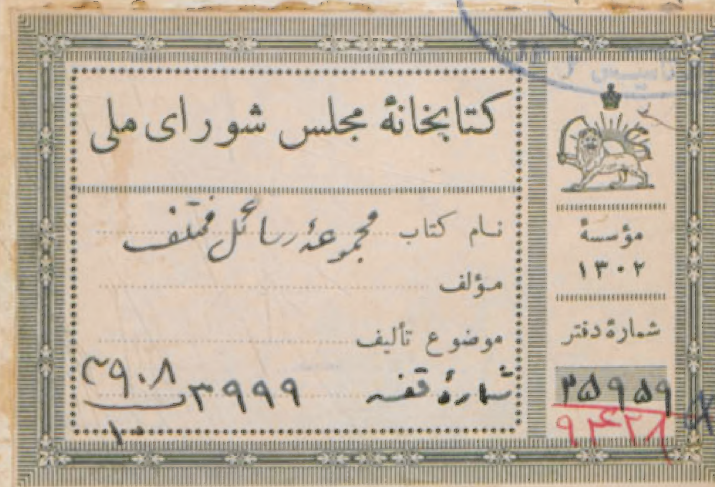 کتابخانهٔ مجلس شورای ملی
نام کتاب مجموعهٔ رسائل مختلف
مؤلف
موضوع تألیف
شمارهٔ قفسه ۳۹۹۹
۳۹۰۸
۱۰
مؤسسهٔ
۱۳۰۲
شمارهٔ دفتر
۲۵۹۵۹
۹۴۲۸